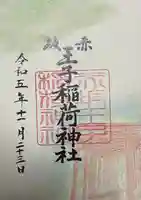 奉拝
王子稲荷神社
令和五年十一月二十三日